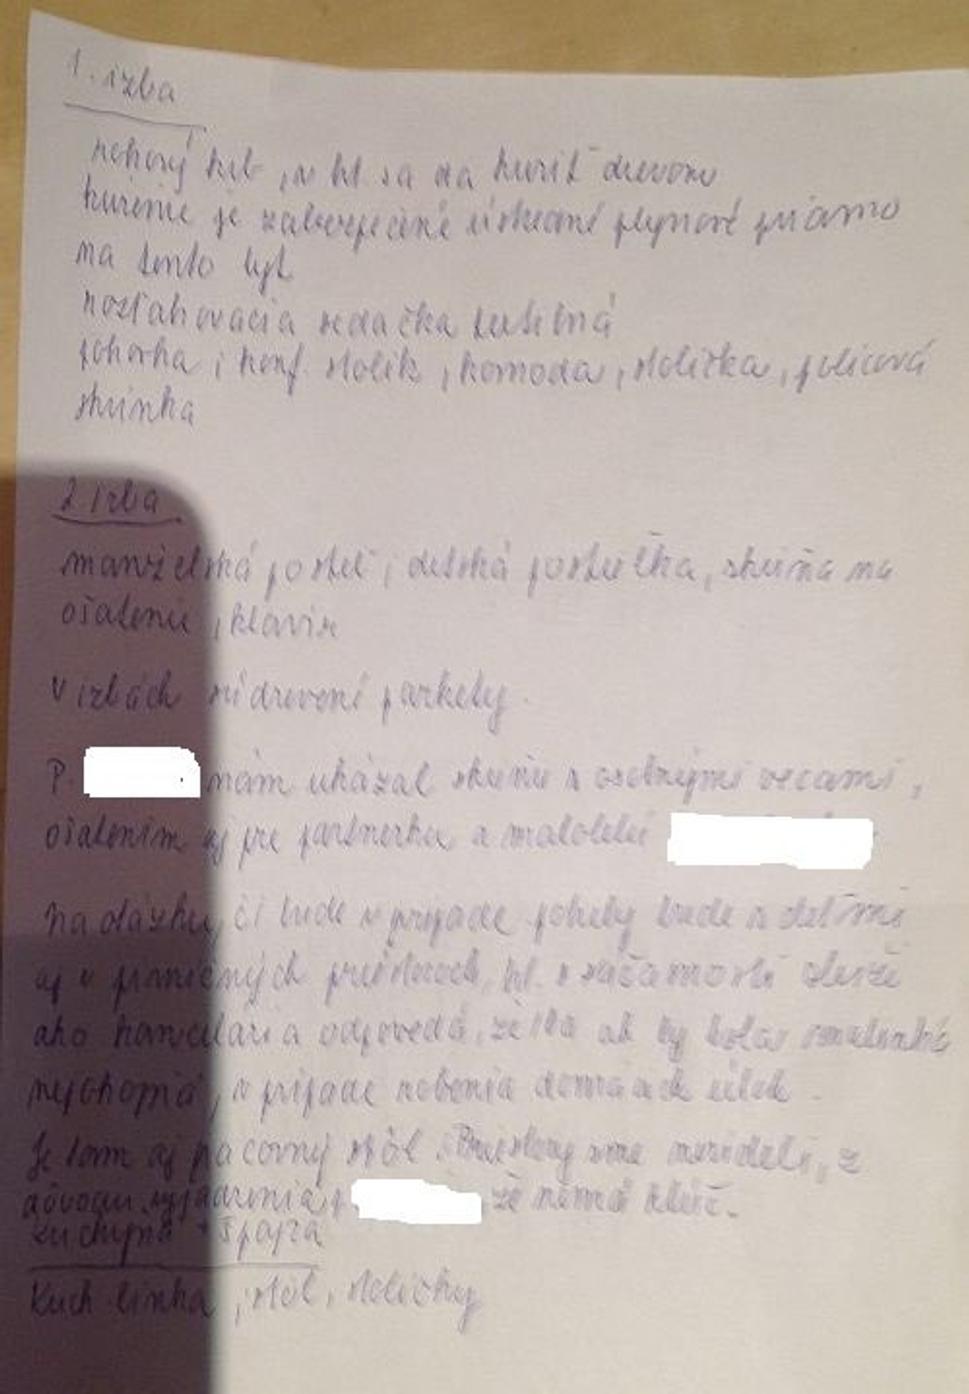 1. izba
rohový krb, v kt. sa da kuriť drevom
kúrenie je zabezpečené ústredné plynové priamo
na tento byt
rozťahovacia sedačka
pohovka, konf. stolík, komoda, stolička, policová
skrinka
2. izba
manželská posteľ, detská postieľka, skriňa na
ošatenie, klavír
V izbách sú drevené parkety.
P. nám ukázal skriňu s osobnými vecami,
ošatením aj pre partnerku a maloleté
Na otázku, či bude v prípade potreby bude s deťmi
aj v priestoroch, kt. v súčasnosti slúži
ako kancelária odpovedá, že ak by bola
v prípade robenia domácich úloh.
Je tam aj pacovný stôl. Priestory sme nevideli, z
dôvodu vyjadrenia p. že nemá kľúč.
Kuchyňa + špajza
Kuch. linka, stôl, stoličky